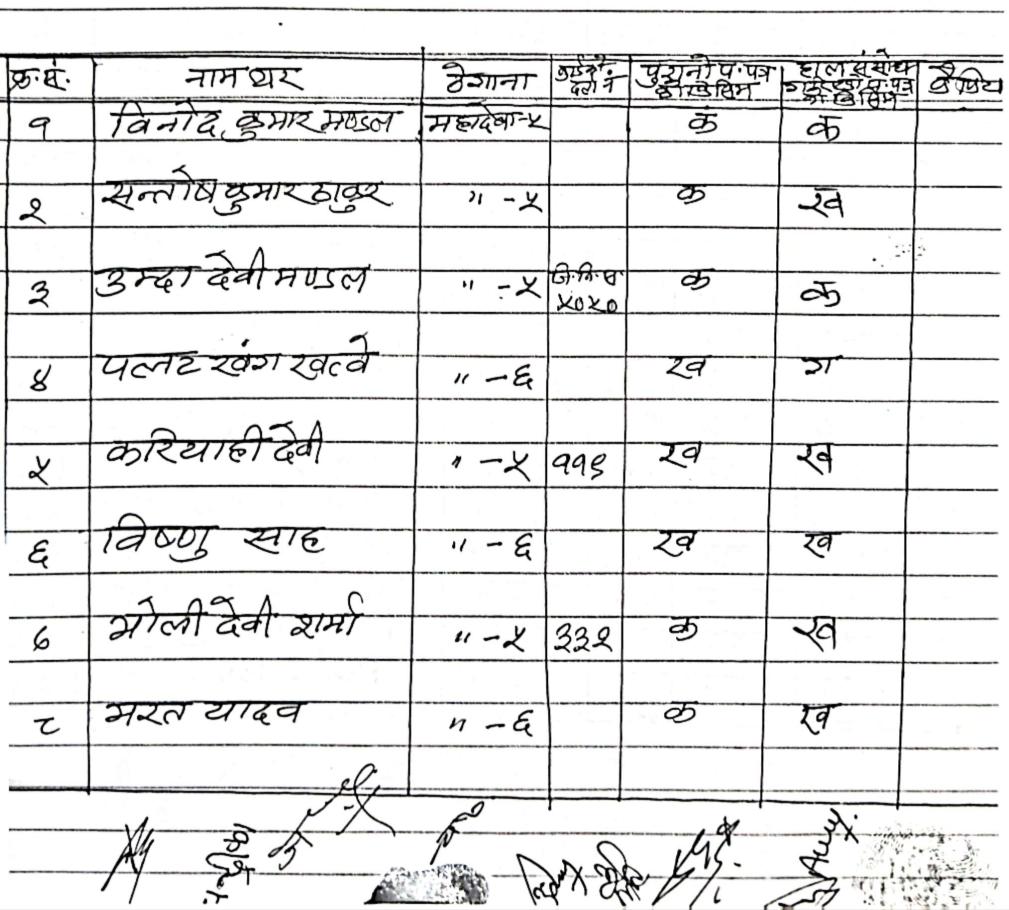 क्र.सं. नाम थर ठेगाना कार्डको दर्ता नं पुरानो प.पत्र को किसिम हाल संसोधन गरिएको प.पत्र को किसिम कैफियत
१ विनोद कुमार मण्डल महादेवा-५ क क
२ सन्तोष कुमार ठाकुर " -५ क ख
३ उम्दा देवी मण्डल " -५ ५०५० क क
४ पलट खंग खत्वे " -६ ख ग
५ करियाही देवी " -५ ११९ ख ख
६ विष्णु साह " -६ ख ख
७ भोली देवी शर्मा " -५ ३३२ क ख
८ भरत यादव " -६ क ख